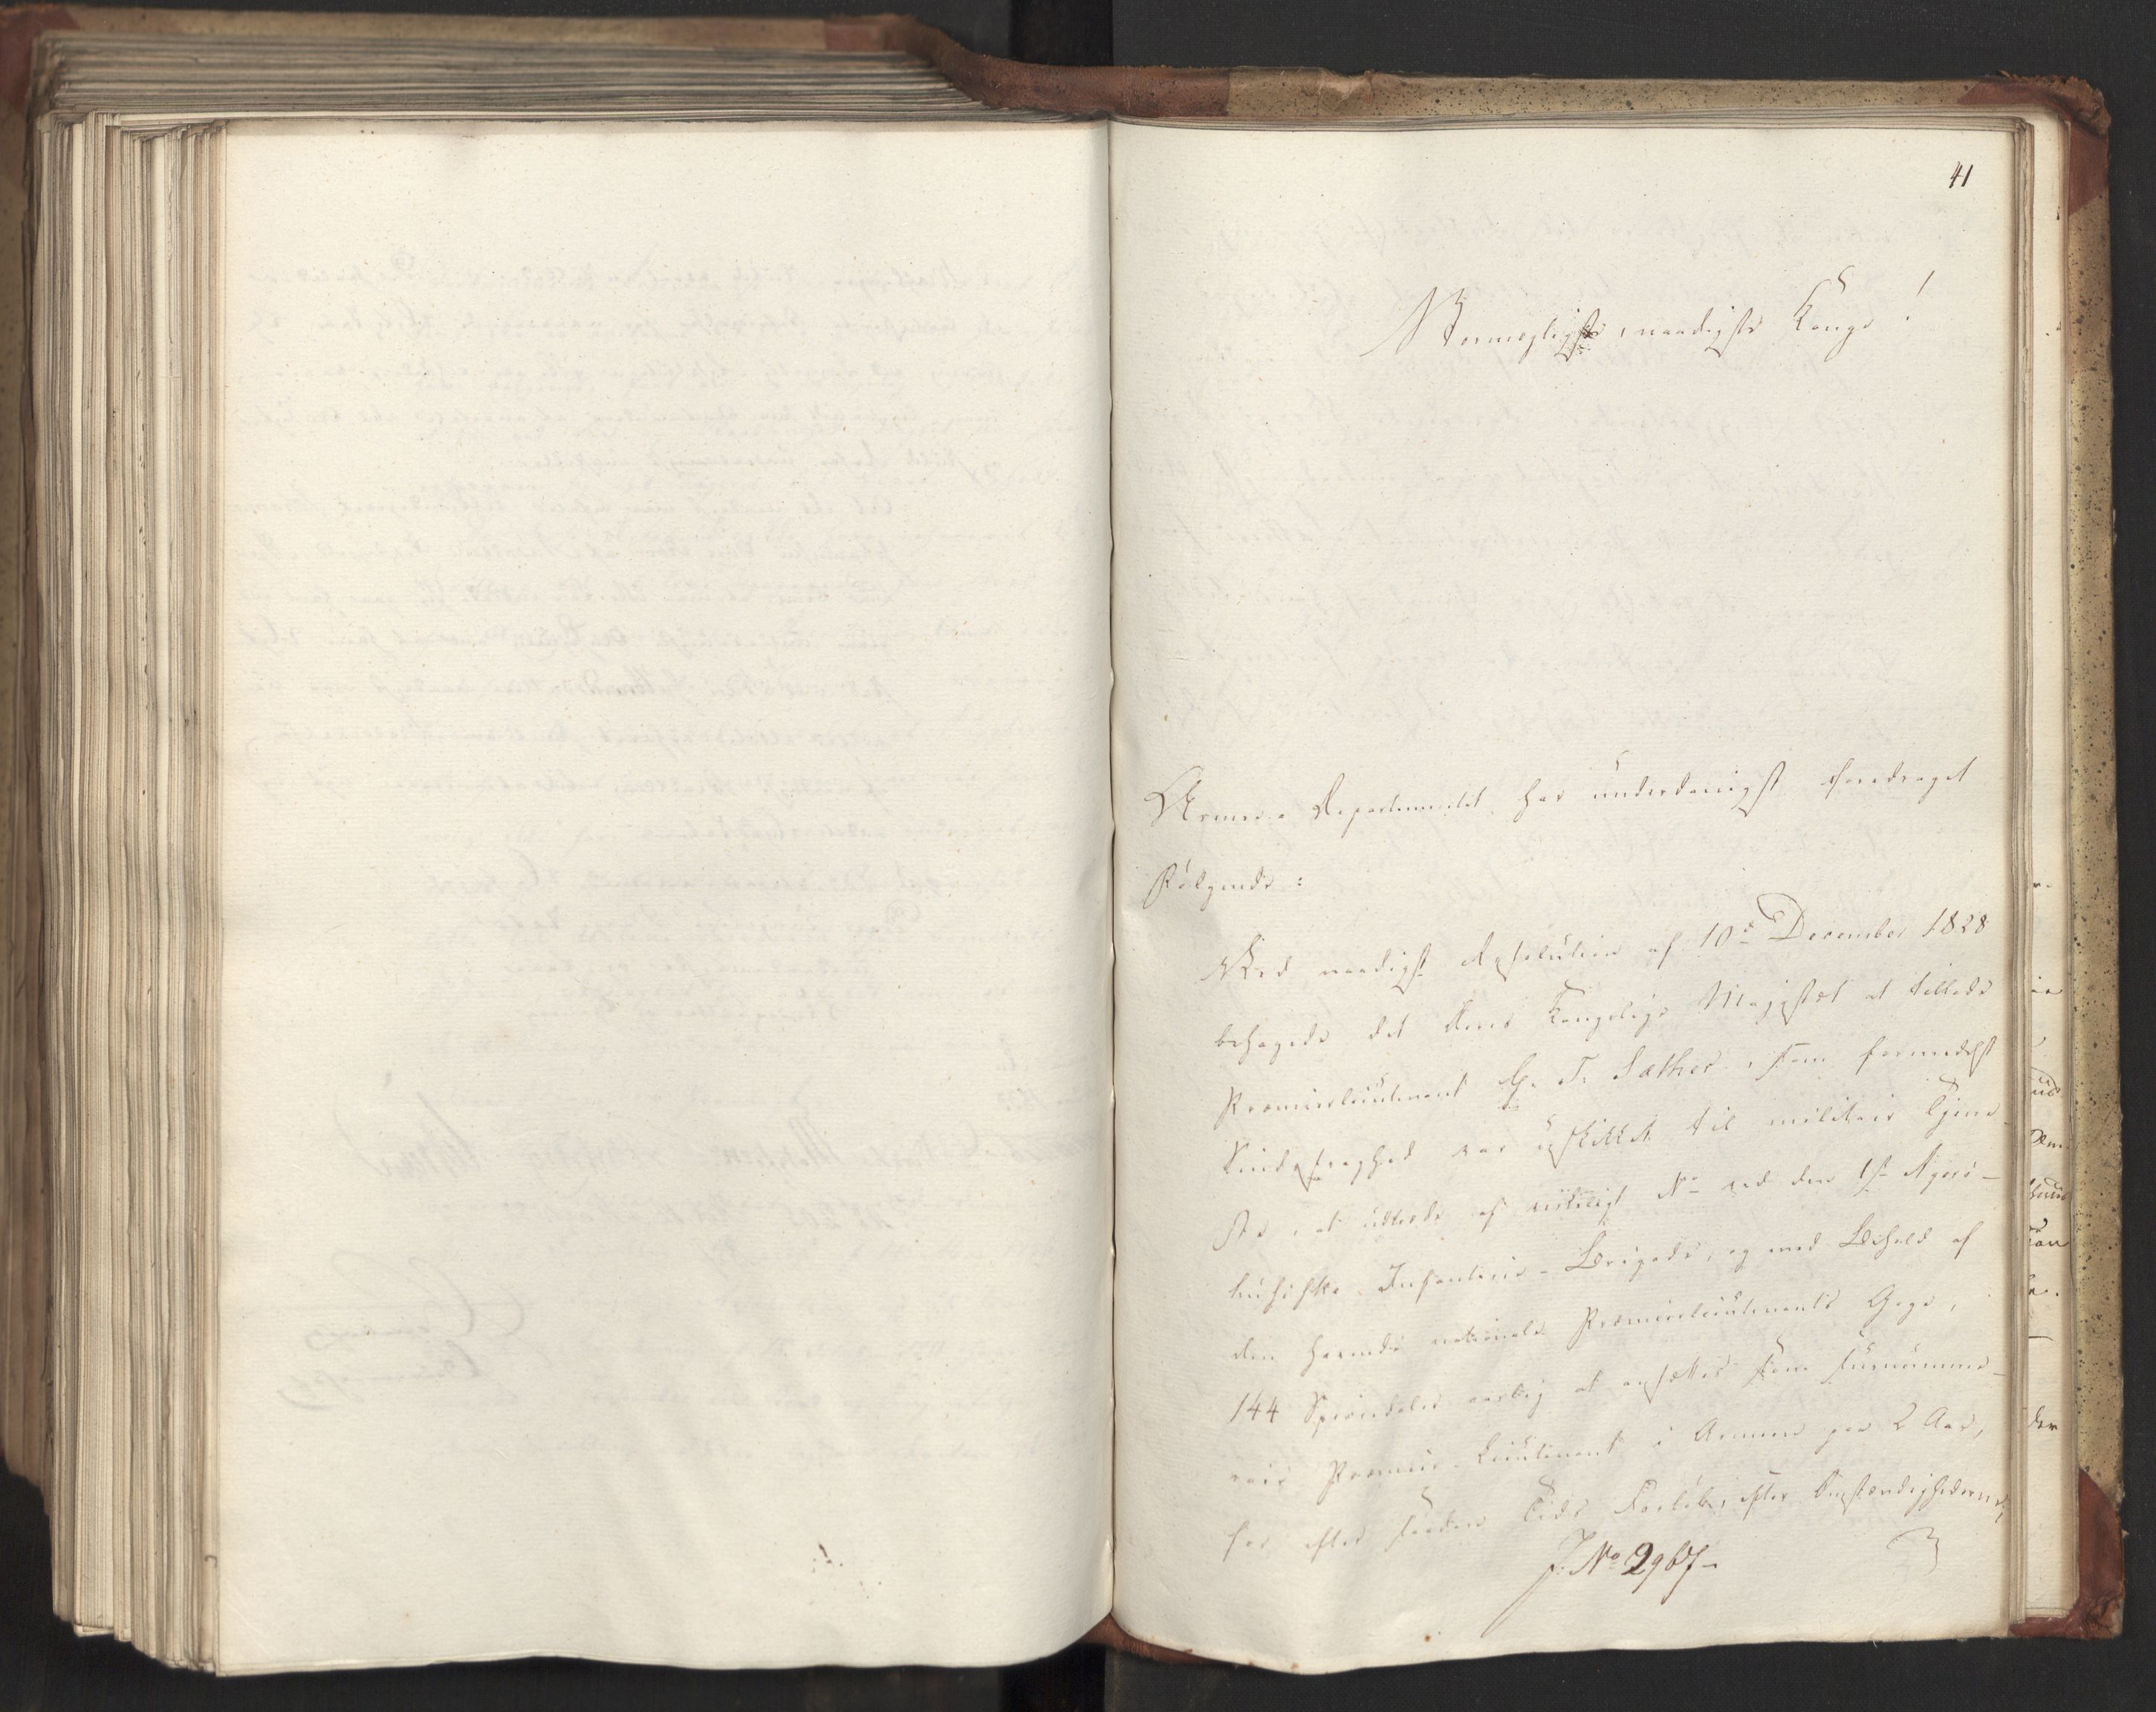 41
Stormægtigste, naadigste Konge!
Armee-Departementet har underdanigst foredraget
Følgende:
Ved naadigst Resolution af 10de December 1828
behagede det Deres Kongelige Majestæt at tillade
Premierlieutenant G. F. Sather, som formedelst
Sindssvaghed var uskikket til militair Tjene-
ste, at udtræde af virkeligt No ved den 1ste Agers-
huusiske Infanterie-Brigade, og med Behold af
den havende nationale Premierlieutenants Gage,
144 Speciedaler aarlig at ansættes som surnumme-
rair Premier-Lieutenant i Armeen paa 2 Aar,
for efter saadan Tids Forløb, efter Omstændighederne,
J. No 2967-